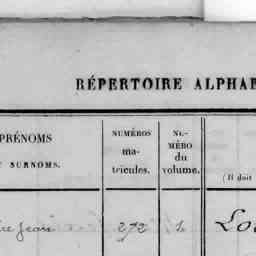 RÉPERTOIRE ALPHA
PRÉNOMS
SURNOMS.
NUMÉROS
ma-
tricules.
NU-
MÉRO
du
volume.
(Il doit
Jean 272 1